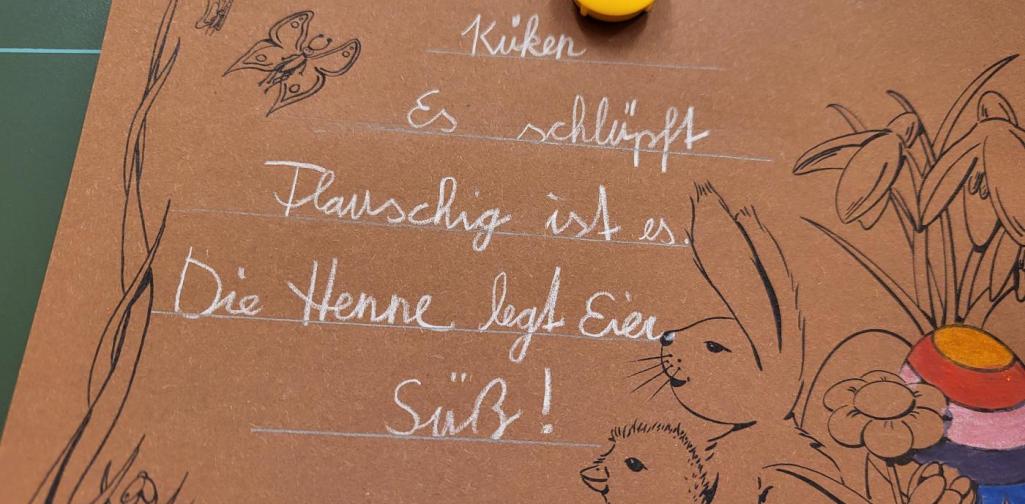 Küken
Es schlüpft
Flauschig ist es.
Die Henne legt Eier.
Süß!